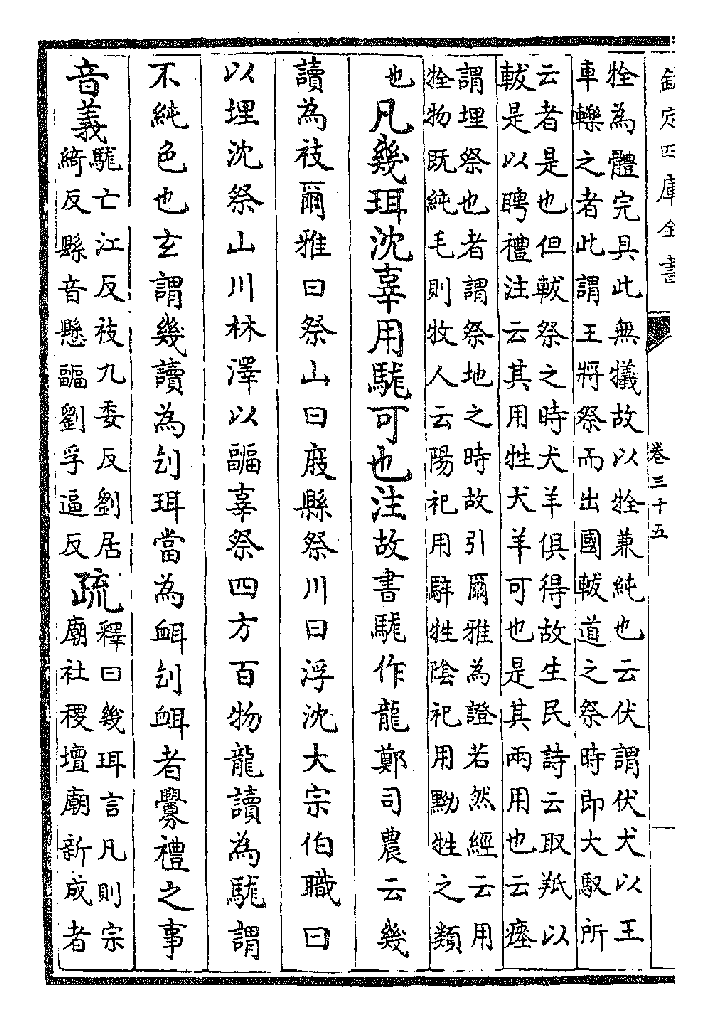 欽定四庫全書
卷三十五
牷為體完具此無犧故以牷兼純也云伏謂伏犬以王
車轢之者此謂王將祭而出國軷道之祭時即大馭所
云者是也但軷祭之時犬羊俱得故生民詩云取羝以
軷是以聘禮注云其用牲犬羊可也是其兩用也云瘞
謂埋祭也者謂祭地之時故引爾雅為證若然經云用
牷物既純毛則牧人云陽祀用騂牲陰祀用黝牲之類
也凡幾珥沈辜用駹可也注故書駹作龍鄭司農云幾
讀為祪爾雅曰祭山曰庪縣祭川曰浮沈大宗伯職曰
以埋沈祭山川林澤以疈辜祭四方百物龍讀為駹謂
不純色也玄謂幾讀為刉珥當為衈刉衈者釁禮之事
音義駹亡江反祪九委反劉居
綺反縣音懸疈劉孚逼反
疏釋曰幾珥言凡則宗
廟社稷壇廟新成者